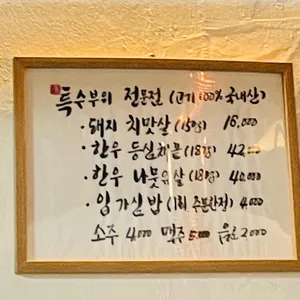 특수부위 전문점 (고기 100% 국내산)
· 돼지 치맛살 (150g) 16,000
· 한우 등심체끝 (180g) 42,000
· 한우 나뭇잎살 (180g) 40,000
· 입가심밥 (1회 주문한정) 4,000
소주 4,000 맥주 5,000 음료 2,000